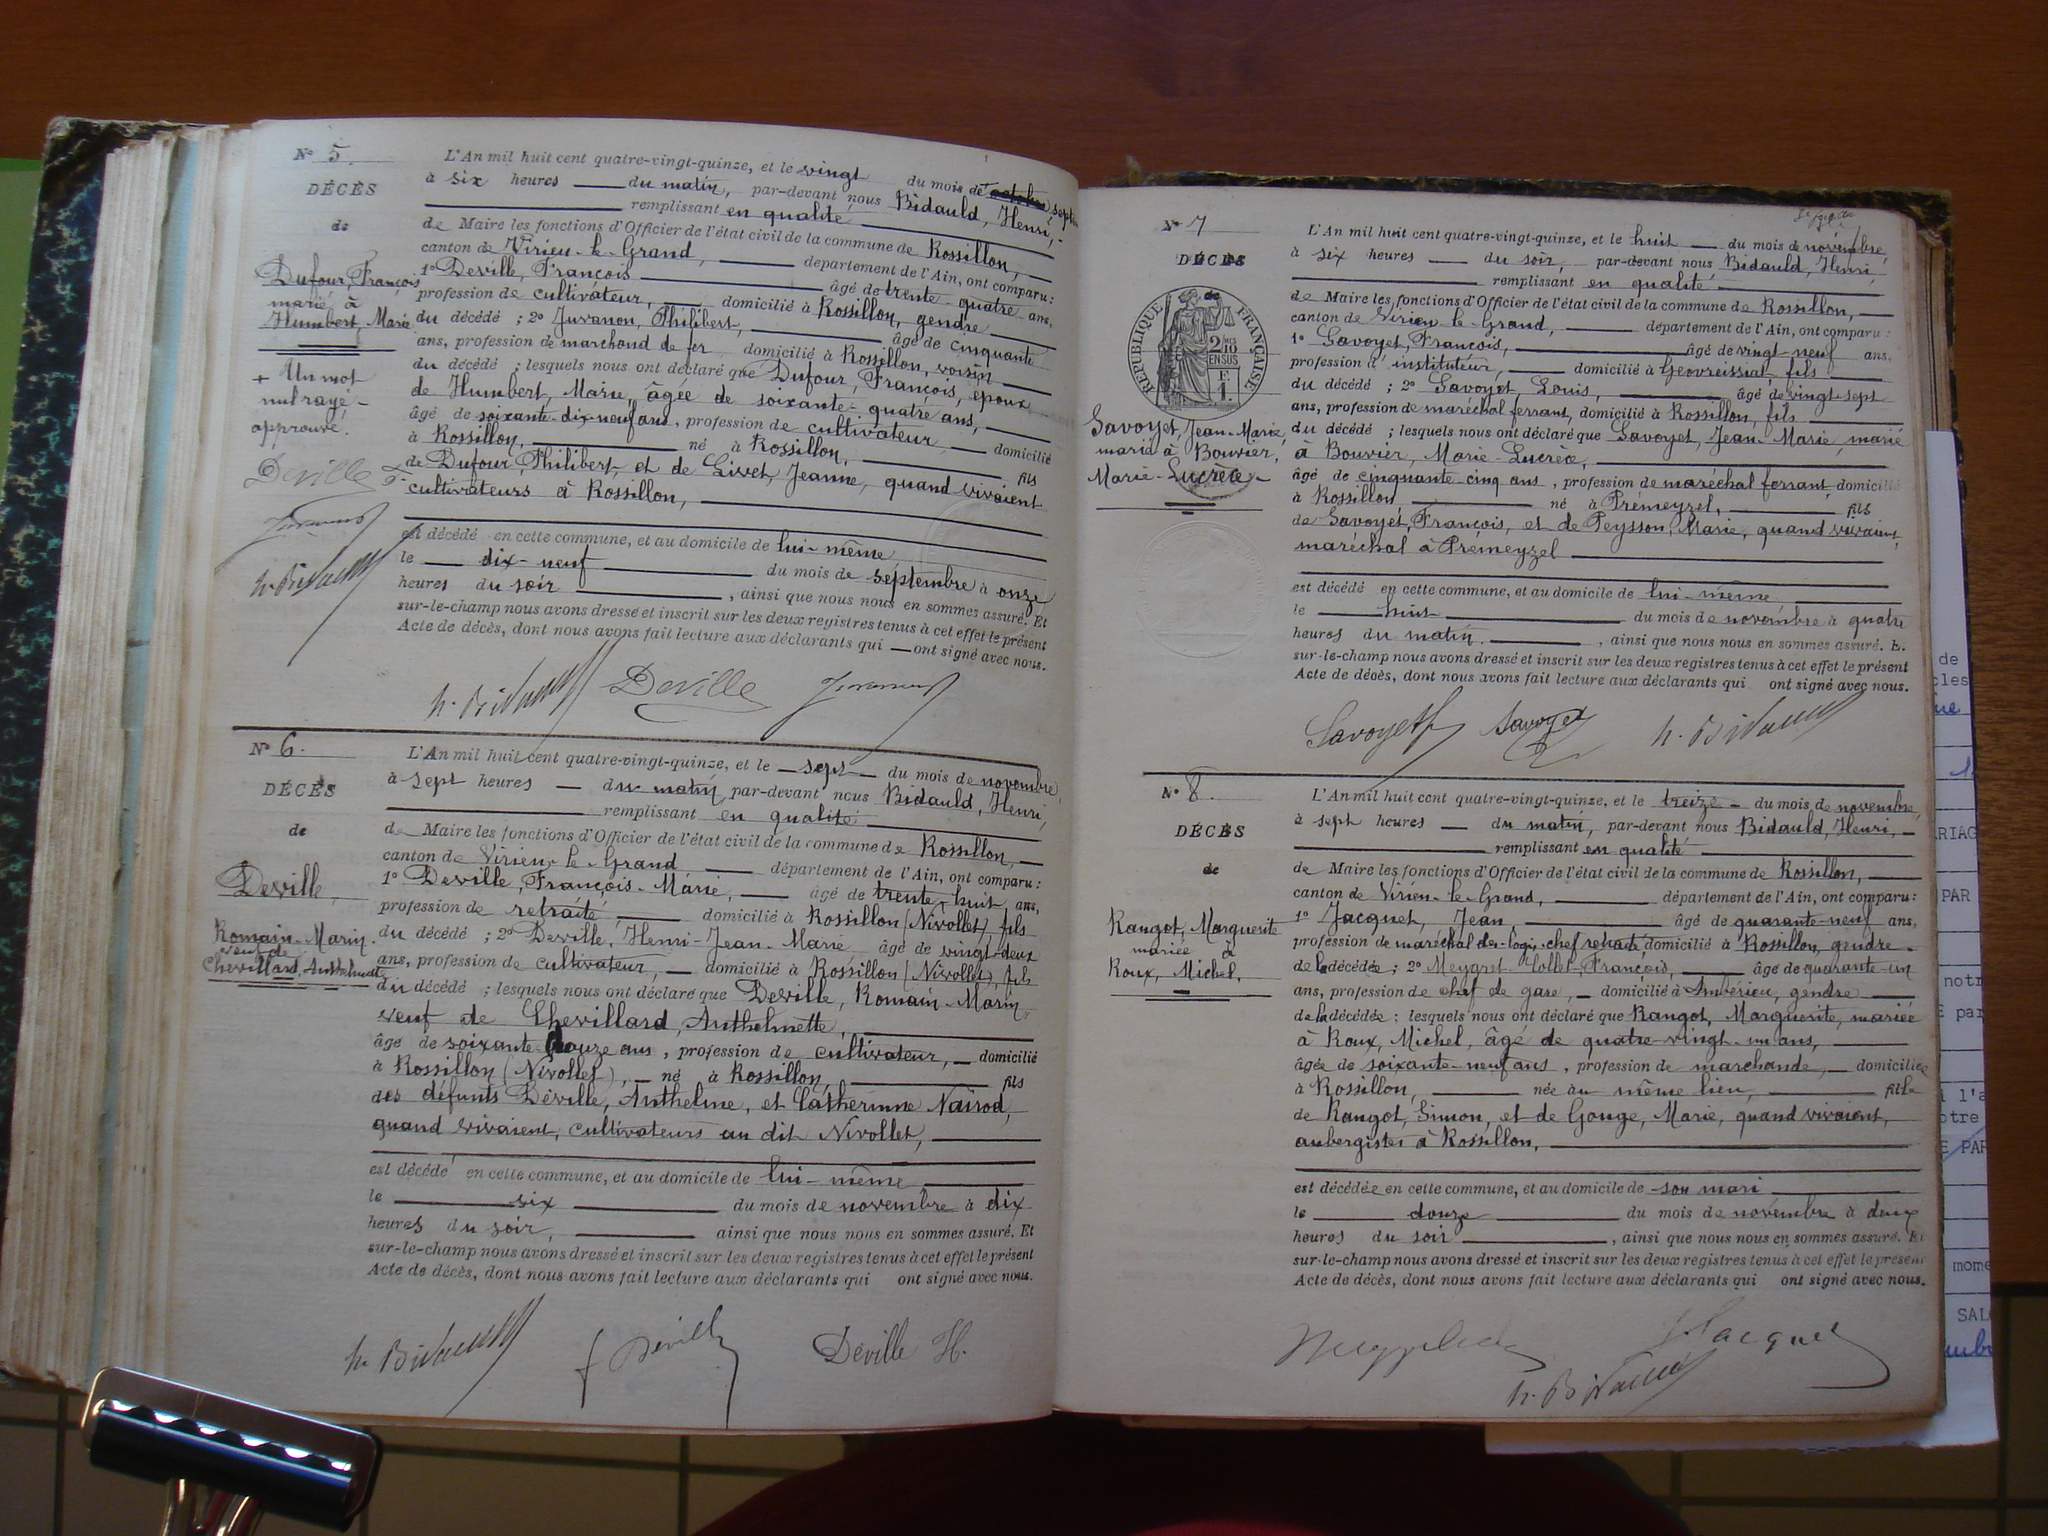 N° 5.
DÉCÈS
de
Dufour, François
marié à
Humbert, Marie
+ Un mot
nul rayé
approuvé.
Deville F
L'An mil huit cent quatre-vingt-quinze, et le vingt du mois de octobre sept
à six heures du matin, par-devant nous Bidauld, Henri,
remplissant en qualité
de Maire les fonctions d'Officier de l'état civil de la commune de Rossillon,
canton de Virieu-le-Grand, département de l'Ain, ont comparu :
1° Deville, François âgé de trente-quatre ans,
profession de cultivateur, domicilié à Rossillon, gendre
du décédé ; 2° Juvanon, Philibert, âgé de cinquante
ans, profession de marchand de fer domicilié à Rossillon, voisin
du décédé ; lesquels nous ont déclaré que Dufour, François, époux
de Humbert, Marie, âgée de soixante-quatre ans,
âgé de soixante-dix-neuf ans, profession de cultivateur, domicilié
à Rossillon, né à Rossillon, fils
de Dufour, Philibert, et de Livet, Jeanne, quand vivaient
cultivateurs à Rossillon,
est décédé en cette commune, et au domicile de lui-même
le dix-neuf du mois de septembre à onze
heures du soir, ainsi que nous nous en sommes assuré. Et
sur-le-champ nous avons dressé et inscrit sur les deux registres tenus à cet effet le présent
Acte de décès, dont nous avons fait lecture aux déclarants qui ont signé avec nous.
h. Bidauld Deville Juvanon
N° 6.
DÉCÈS
de
Deville,
Romain-Marin
veuf de
Chevillard, Anthelmette
L'An mil huit cent quatre-vingt-quinze, et le sept du mois de novembre,
à sept heures du matin, par-devant nous Bidauld, Henri,
remplissant en qualité
de Maire les fonctions d'Officier de l'état civil de la commune de Rossillon,
canton de Virieu-le-Grand département de l'Ain, ont comparu :
1° Deville, François-Marie, âgé de trente-huit ans,
profession de retraité, domicilié à Rossillon (Nivollet) fils
du décédé ; 2° Deville, Henri-Jean-Marie âgé de vingt-deux
ans, profession de cultivateur, domicilié à Rossillon (Nivollet), fils
du décédé ; lesquels nous ont déclaré que Deville, Romain-Marin,
veuf de Chevillard, Anthelmette,
âgé de soixante-douze ans, profession de cultivateur, domicilié
à Rossillon (Nivollet), né à Rossillon, fils
des défunts Deville, Anthelme, et Catherinne Nairod,
quand vivaient, cultivateurs au dit Nivollet,
est décédé en cette commune, et au domicile de lui-même
le six du mois de novembre à dix
heures du soir, ainsi que nous nous en sommes assuré. Et
sur-le-champ nous avons dressé et inscrit sur les deux registres tenus à cet effet le présent
Acte de décès, dont nous avons fait lecture aux déclarants qui ont signé avec nous.
h. Bidauld f Deville Deville H.
N° 7
DÉCÈS
de
RÉPUBLIQUE FRANÇAISE
2/10 EN SUS
Savoyet, Jean-Marie,
marié à Bouvier,
Marie-Lucrèce
L'An mil huit cent quatre-vingt-quinze, et le huit du mois de novembre,
à six heures du soir, par-devant nous Bidauld, Henri,
remplissant en qualité
de Maire les fonctions d'Officier de l'état civil de la commune de Rossillon,
canton de Virieu-le-Grand, département de l'Ain, ont comparu :
1° Savoyet, François, âgé de vingt-neuf ans,
profession d'instituteur, domicilié à Geovreissiat, fils
du décédé ; 2° Savoyet Louis, âgé de vingt-sept
ans, profession de maréchal ferrant, domicilié à Rossillon, fils
du décédé ; lesquels nous ont déclaré que Savoyet, Jean-Marie, marié
à Bouvier, Marie-Lucrèce,
âgé de cinquante-cinq ans, profession de maréchal ferrant, domicilié
à Rossillon né à Prémeyzel, fils
de Savoyet, François, et de Peysson, Marie, quand vivaient,
maréchal à Prémeyzel
est décédé en cette commune, et au domicile de lui-même
le huit du mois de novembre à quatre
heures du matin, ainsi que nous nous en sommes assuré. E.
sur-le-champ nous avons dressé et inscrit sur les deux registres tenus à cet effet le présent
Acte de décès, dont nous avons fait lecture aux déclarants qui ont signé avec nous.
Savoyet Savoyet h. Bidauld
N° 8.
DÉCÈS
de
Rangot, Marguerite
mariée à
Roux, Michel,
L'An mil huit cent quatre-vingt-quinze, et le treize du mois de novembre,
à sept heures du matin, par-devant nous Bidauld, Henri,
remplissant en qualité
de Maire les fonctions d'Officier de l'état civil de la commune de Rossillon,
canton de Virieu-le-Grand, département de l'Ain, ont comparu :
1° Jacquet, Jean âgé de quarante-neuf ans,
profession de maréchal des-logis-chef retraité domicilié à Rossillon, gendre
de la décédée ; 2° Meygret-Collet, François, âgé de quarante-un
ans, profession de chef de gare, domicilié à Ambérieu, gendre
de la décédée ; lesquels nous ont déclaré que Rangot, Marguerite, mariée
à Roux, Michel, âgé de quatre-vingt-un ans,
âgée de soixante-neuf ans, profession de marchande, domiciliée
à Rossillon, née au même lieu, fille
de Rangot, Simon, et de Gouge, Marie, quand vivaient,
aubergistes à Rossillon,
est décédée en cette commune, et au domicile de son mari
le douze du mois de novembre à deux
heures du soir, ainsi que nous nous en sommes assuré. Et
sur-le-champ nous avons dressé et inscrit sur les deux registres tenus à cet effet le présent
Acte de décès, dont nous avons fait lecture aux déclarants qui ont signé avec nous.
J. Jacquet
h. Bidauld
de
cles
RIAG
PAR
notr
E par
i l'a
otre
E PAR
mome
SAL